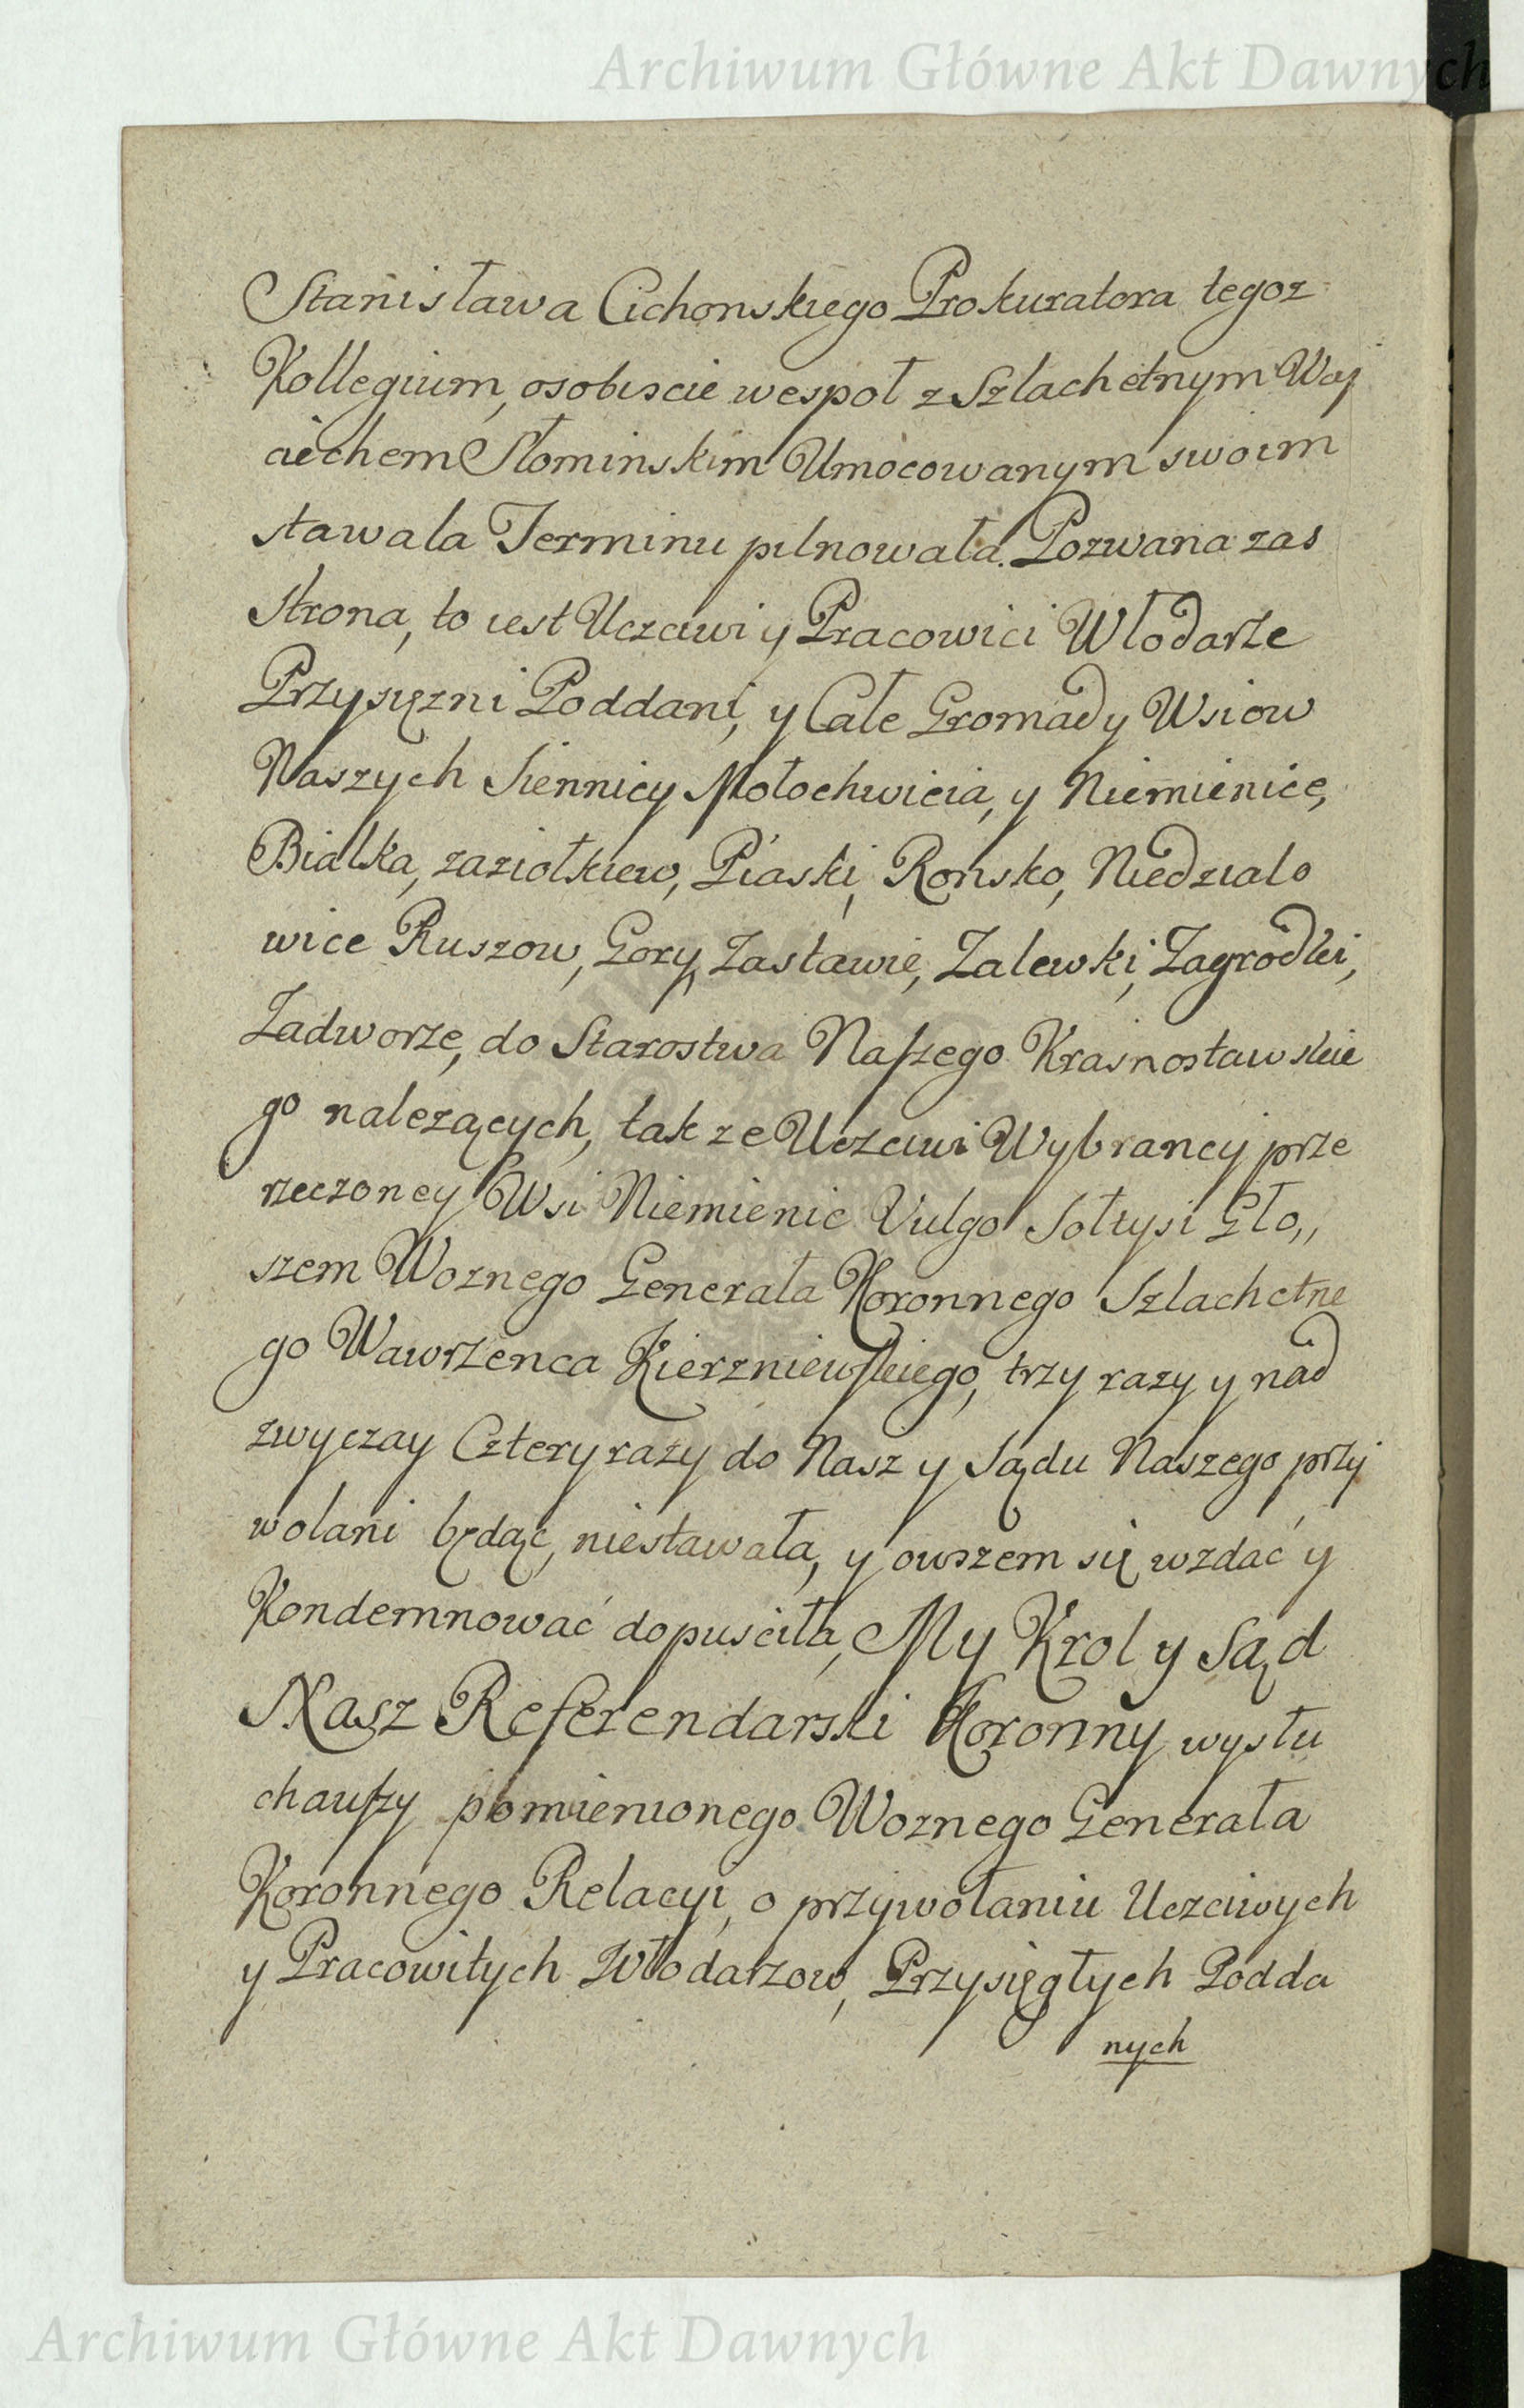 Archiwum Główne Akt Dawnych
Stanisława Cichonskiego Prokuratora tegoz
Kollegium, osobiscie wespoł z Szlachetnym Woy
ciechem Słominskim Umocowanym swoim
stawala Terminu pilnowała. Pozwana zas
Strona, to iest Uczciwi y Pracowici Włodarze
Przysięzni Poddani, y Całe Gromady Wsiow
Naszych Siennicy Mołochwicia, y Niemienice,
Białka, zaziołkiew, Piaski, Ronsko, Niedziało
wice Ruszow, Gory, Zastawie, Zalewki, Zagrodki,
Zadworze, do Starostwa Naszego Krasnostawskie
go nalezących, tak ze Uczciwi Wybrancy prze
rzeczoney Wsi Niemienic Vulgo Sołtysi Gło,,
szem Woznego Generała Koronnego Szlachetne
go Wawrzenca Kierzniewskiego, trzy razy y nad
zwyczay Cztery razy do Nasz y Sądu Naszego przy
wolani będąc, niestawała, y owszem się wzdać y
Kondemnować dopusciła, My Krol y Sąd
Nasz Referendarski Koronny wysłu
chauszy pomienionego Woznego Generała
Koronnego Relacyi, o przywołaniu Uczciwych
y Pracowitych Włodarzow, Przysięgłych Podda
nych
Archiwum Główne Akt Dawnych